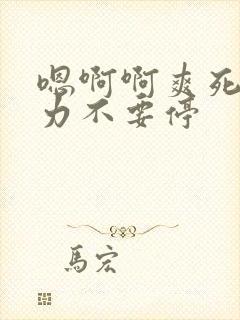 嗯啊啊爽死
力不要停
馬宏